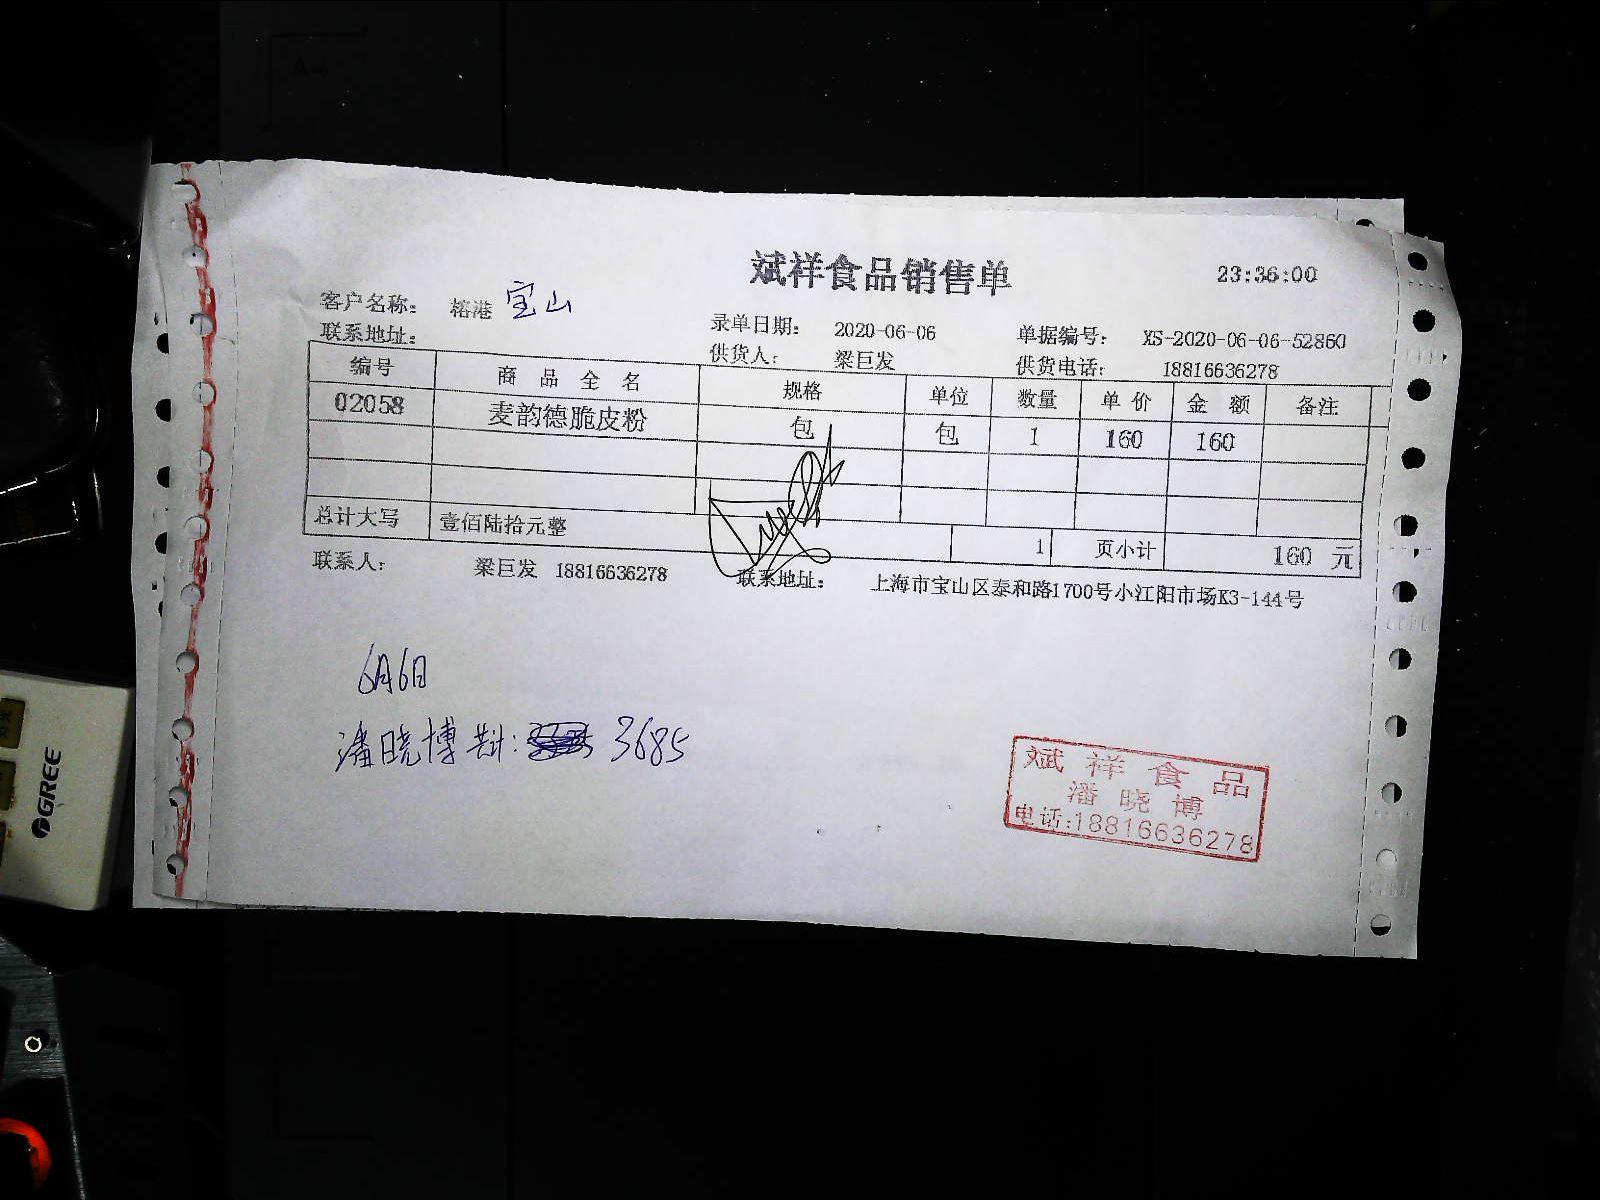 斌祥食品销售单
23:36:00
客户名称： 榕港 宝山
录单日期： 2020-06-06 单据编号： XS-2020-06-06-52860
联系地址：
供货人： 梁巨发 供货电话： 18816636278
编号 商 品 全 名 规格 单位 数量 单 价 金 额 备注
02058 麦韵德脆皮粉 包 包 1 160 160
总计大写 壹佰陆拾元整 1 页小计 160 元
联系人： 梁巨发 18816636278 联系地址： 上海市宝山区泰和路1700号小江阳市场K3-144号
6月6日
潘晓博 共计: 3685
斌祥食品
潘晓博
电话:18816636278
GREE